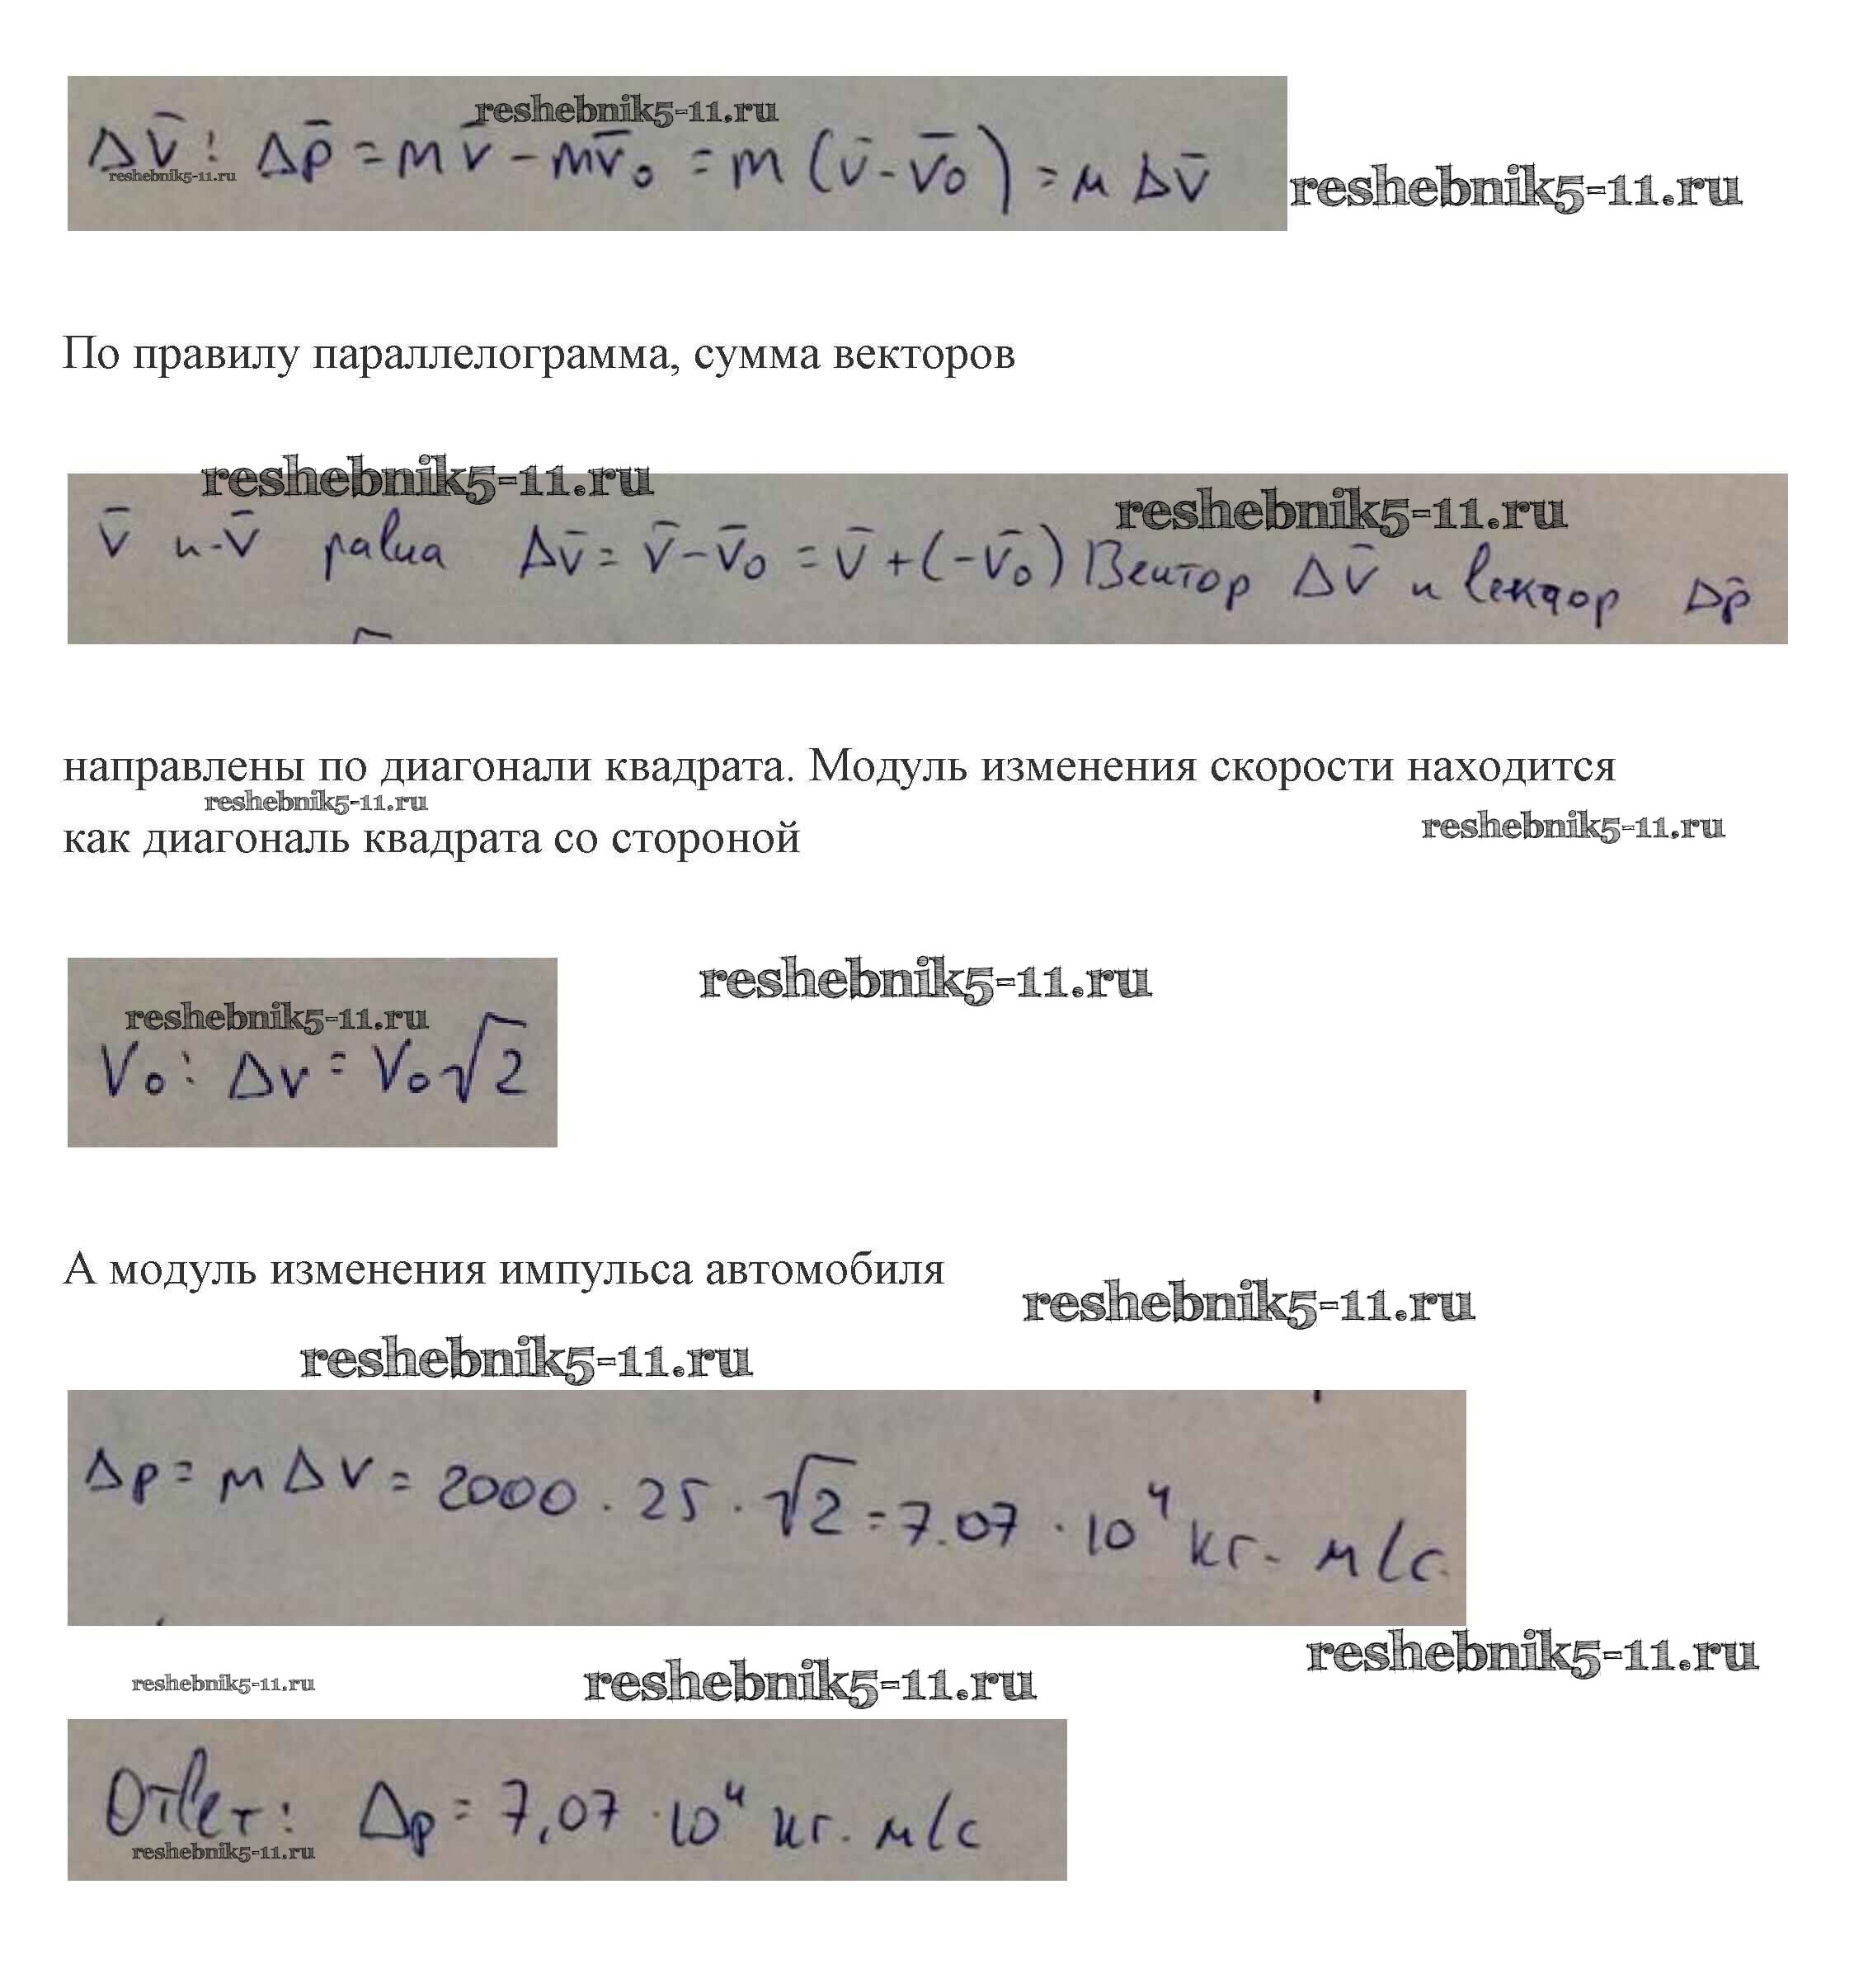 reshebnik5-11.ru
Δv̄: Δp̄ = mv̄ - mv̄₀ = m(v̄ - v̄₀) = mΔv̄
reshebnik5-11.ru
reshebnik5-11.ru
По правилу параллелограмма, сумма векторов
reshebnik5-11.ru
reshebnik5-11.ru
v̄ и -v̄ равна Δv̄ = v̄ - v̄₀ = v̄ + (-v̄₀) Вектор Δv̄ и вектор Δp̄
направлены по диагонали квадрата. Модуль изменения скорости находится
reshebnik5-11.ru
как диагональ квадрата со стороной
reshebnik5-11.ru
reshebnik5-11.ru
reshebnik5-11.ru
V₀: Δv = V₀√2
А модуль изменения импульса автомобиля
reshebnik5-11.ru
reshebnik5-11.ru
Δp = mΔv = 2000 · 25 · √2 = 7.07 · 10⁴ кг. м/с.
reshebnik5-11.ru
reshebnik5-11.ru
reshebnik5-11.ru
Ответ: Δp = 7,07 · 10⁴ кг. м/с
reshebnik5-11.ru